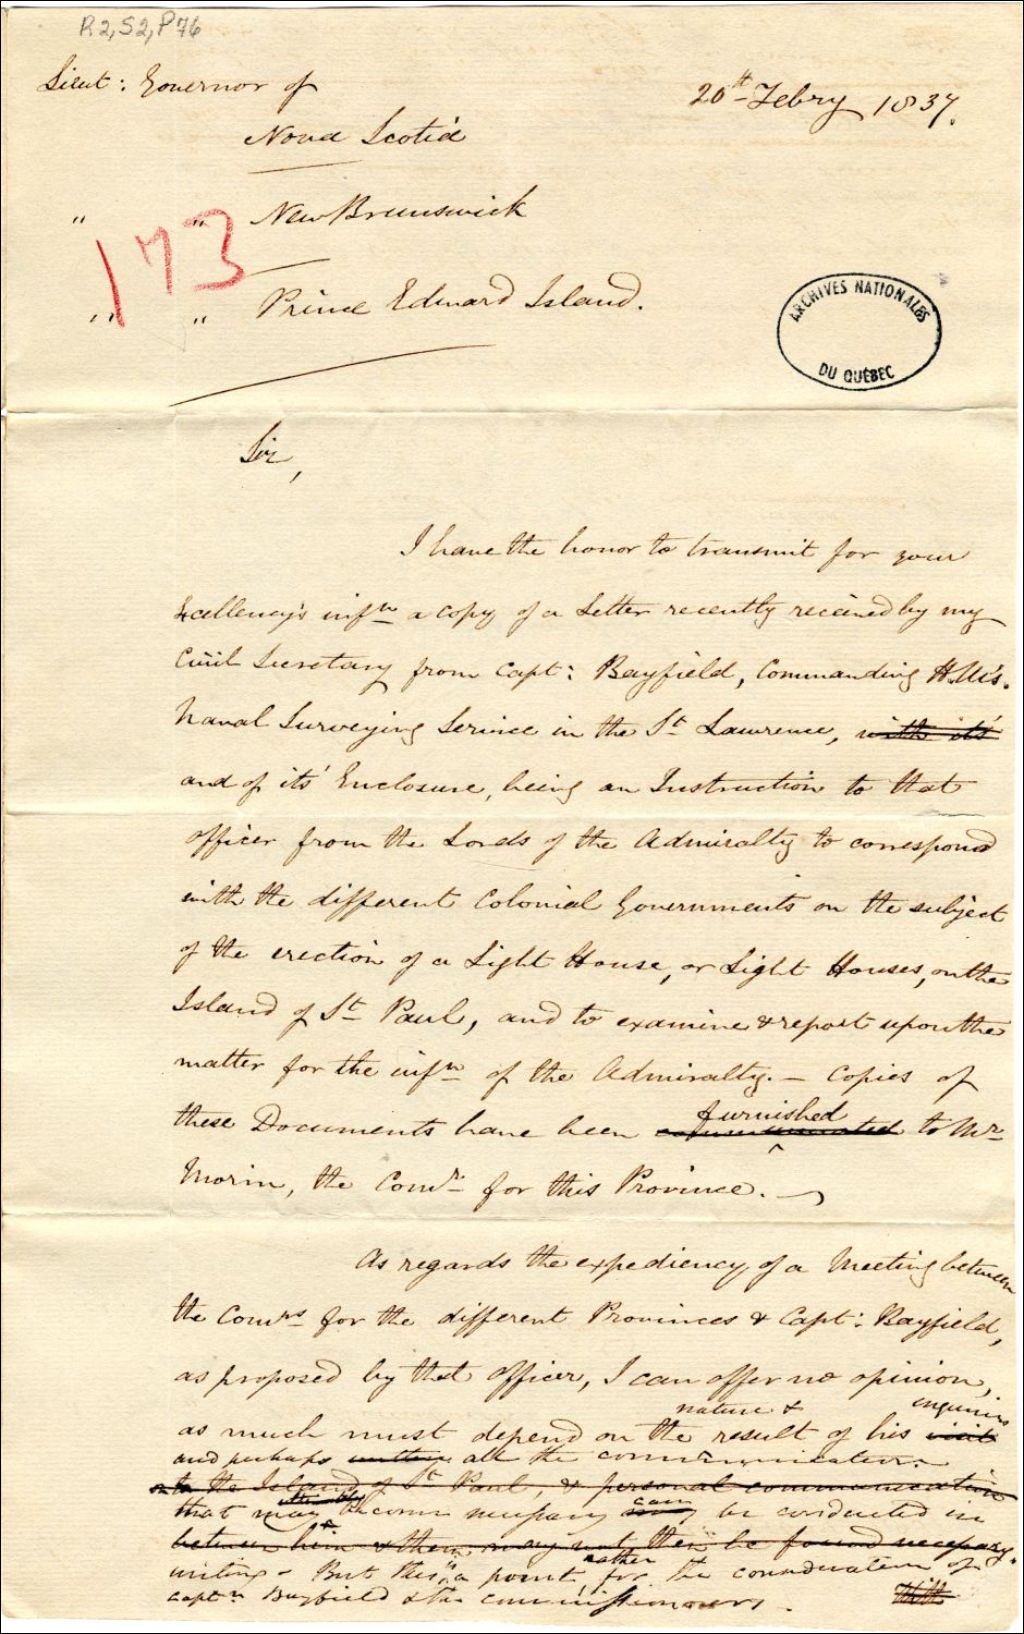 R2, S2, P76
Lieut: Governor of
20th Febry 1837.
Nova Scotia
" " New Brunswick
173
" " Prince Edward Island.
ARCHIVES NATIONALES
DU QUÉBEC
Sir,
I have the honor to transmit for your
Excellency's infn a copy of a Letter recently received by my
Civil Secretary from Capt: Bayfield, Commanding H.M's.
Naval Surveying Service in the St Lawrence, with its
and of its' Enclosure, being an Instruction to that
officer from the Lords of the Admiralty to correspond
with the different Colonial Governments on the subject
of the erection of a Light House, or Light Houses, on the
Island of St Paul, and to examine & report upon the
matter for the infn of the Admiralty. – Copies of
furnished
these Documents have been communicated to Mr
Morin, the Comr for this Province.
As regards the expediency of a Meeting between
the Comrs for the different Provinces & Capt: Bayfield,
as proposed by that officer, I can offer no opinion,
nature & enquiries
as much must depend on the result of his visit
and perhaps all the communication
to the Island of St Paul, & personal communication
that may become necessary can be conducted in
between him & them may not then be found necessary.
rather
writing - But this is a point for the consideration of
Captn Bayfield & the commissioners. With